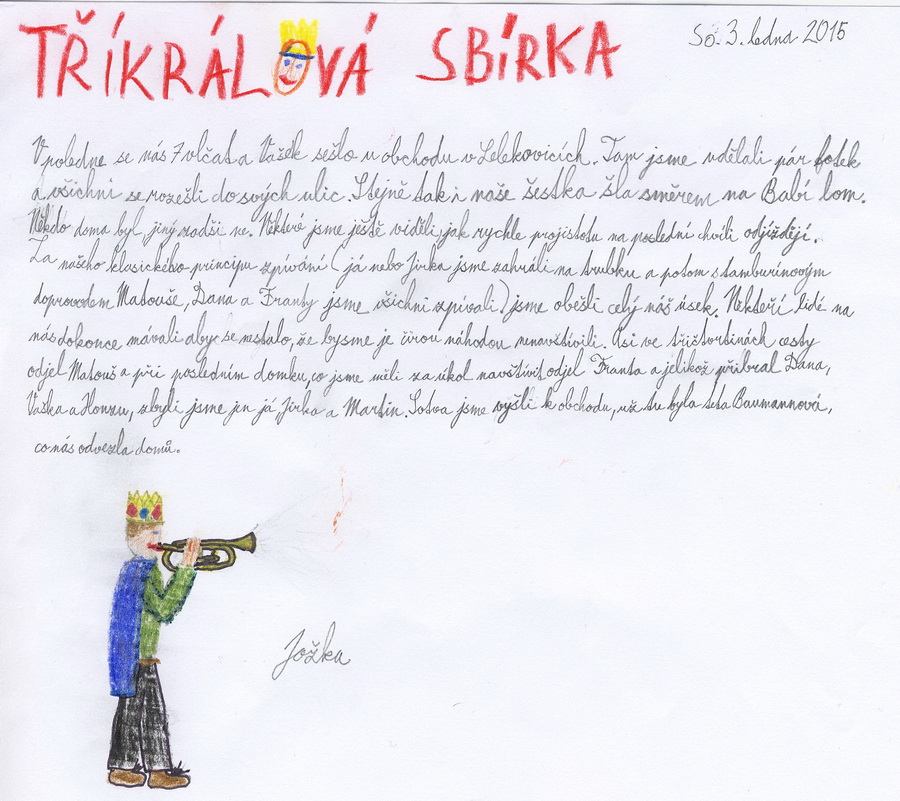 TŘÍKRÁLOVÁ SBÍRKA
So. 3. ledna 2015
V poledne se nás 7 vlčat a Vašek sešlo u obchodu v Lelekovicích. Tam jsme udělali pár fotek
a všichni se rozešli do svých ulic. Stejně tak i naše šestka šla směrem na Babí lom.
Někdo doma byl, jiný zadši ne. Některé jsme ještě viděli, jak rychle projistotu na poslední chvíli odjíždějí.
Za našeho klasického principu zpívání (já nebo Jirka jsme zahráli na trubku a potom s tamburínovým
doprovodem Matouše, Dana a Franty jsme všichni zpívali) jsme obešli celý náš úsek. Nekteří lidé na
nás dokonce mávali aby se nestalo, že bysme je čirou náhodou nenavštívili. Asi ve třičtvrtinách cesty
odjel Matouš a při posledním domku, co jsme měli za úkol navštívit odjel Franta a jelikož přibral Dana,
Vaška a Honzu, zbyli jsme jen já, Jirka a Martin. Sotva jsme vyšli k obchodu, už tu byla teta Baumannová,
co nás odvezla domů.
Jožka